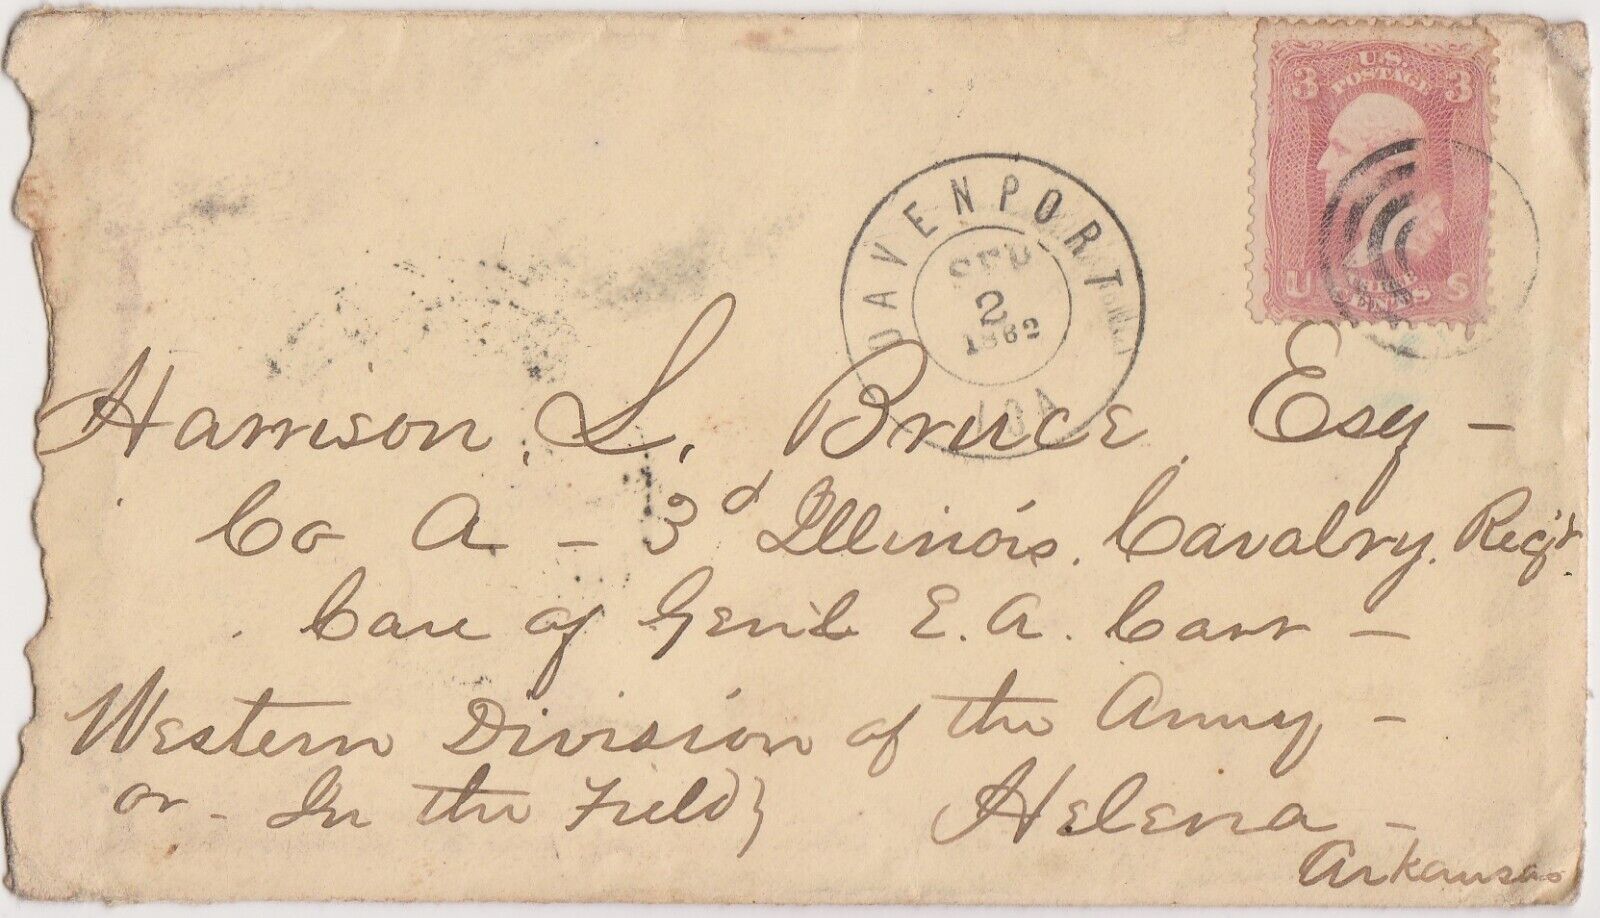 U.S.
POSTAGE
3 3
DAVENPORT
SEP
2
1862
IOA
U S
CENTS
Harrison. L. Bruce. Esqr -
Co A - 3d Illinois. Cavalry. Regt.
Care of Genl E. A. Carr -
Western Division of the Army -
or - In the Field} Helena -
Arkansas